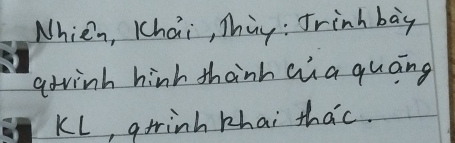 Nhiên, Khải, Thùy: Trình bày
qtrình hình thành của quặng
KL, qtrình khai thác.